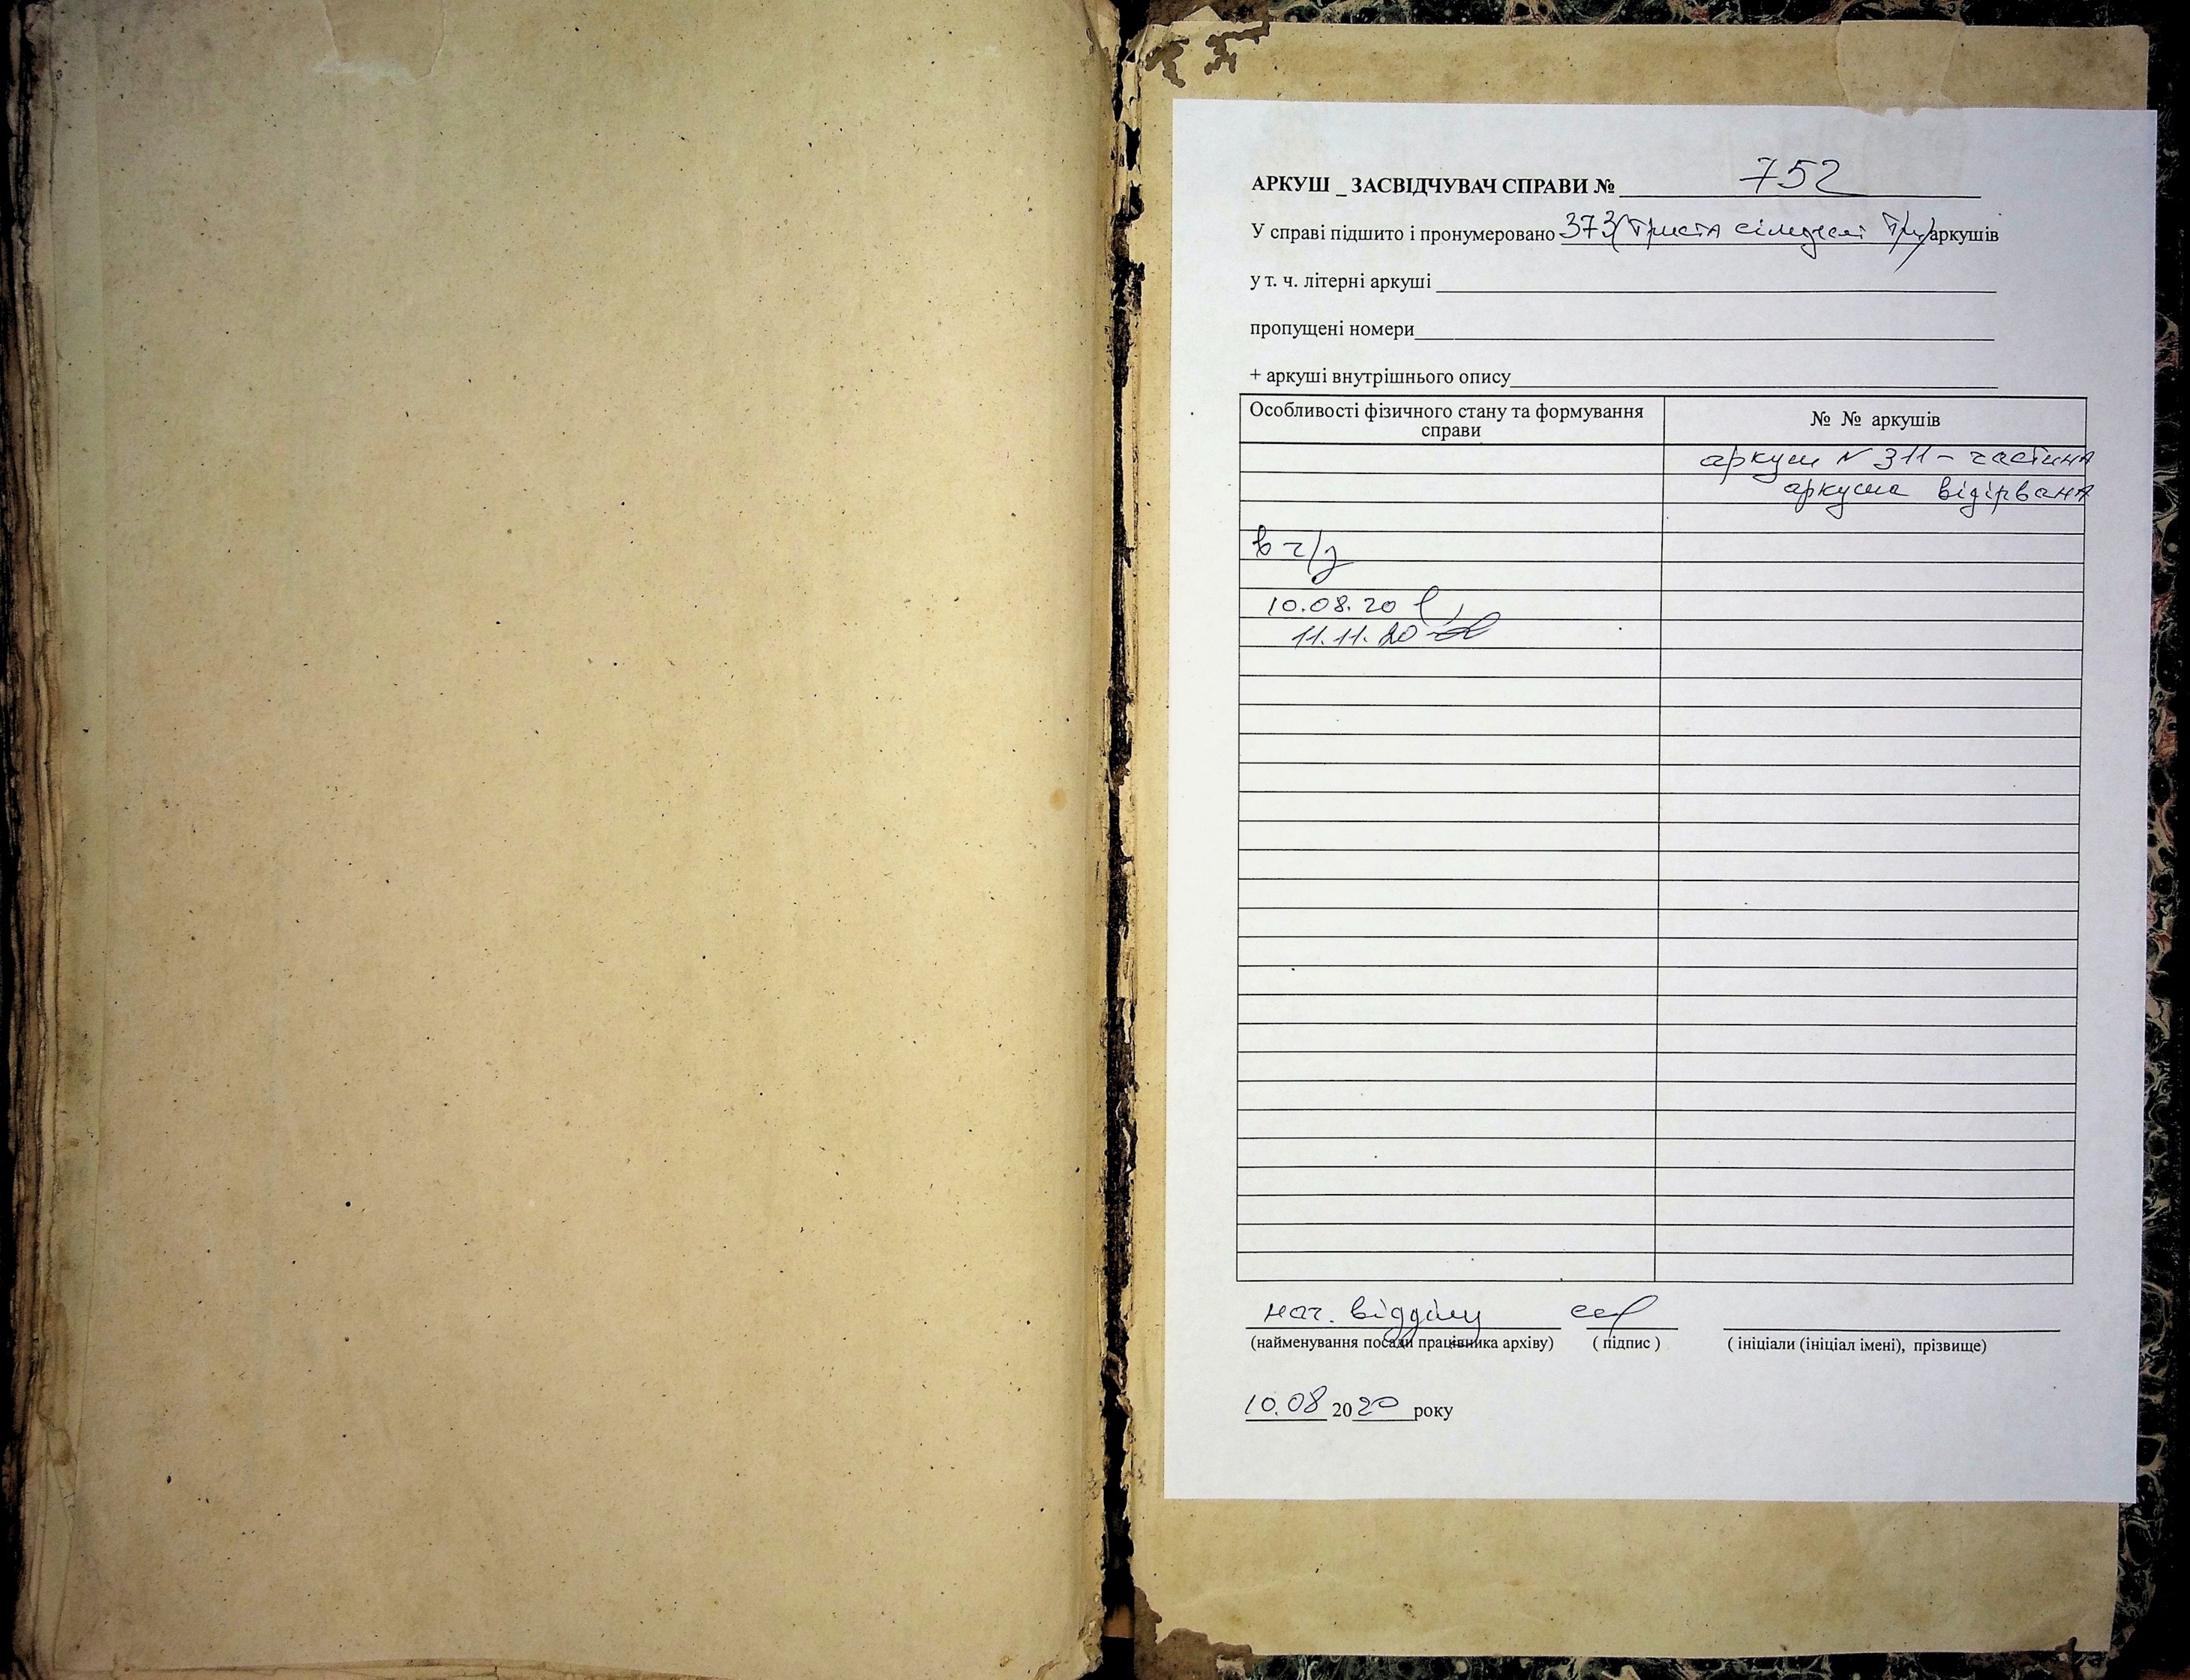 АРКУШ _ ЗАСВІДЧУВАЧ СПРАВИ № 752
У справі підшито і пронумеровано 373 (триста сімдесят три) аркушів
у т. ч. літерні аркуші
пропущені номери
+ аркуші внутрішнього опису
Особливості фізичного стану та формування
справи
№ № аркушів
аркуш № 311 – частина
аркуша відірвана
в ч/з
10.08.20
11.11.20
нач. відділу
(найменування посади працівника архіву) ( підпис ) ( ініціали (ініціал імені), прізвище)
10.08 2020 року